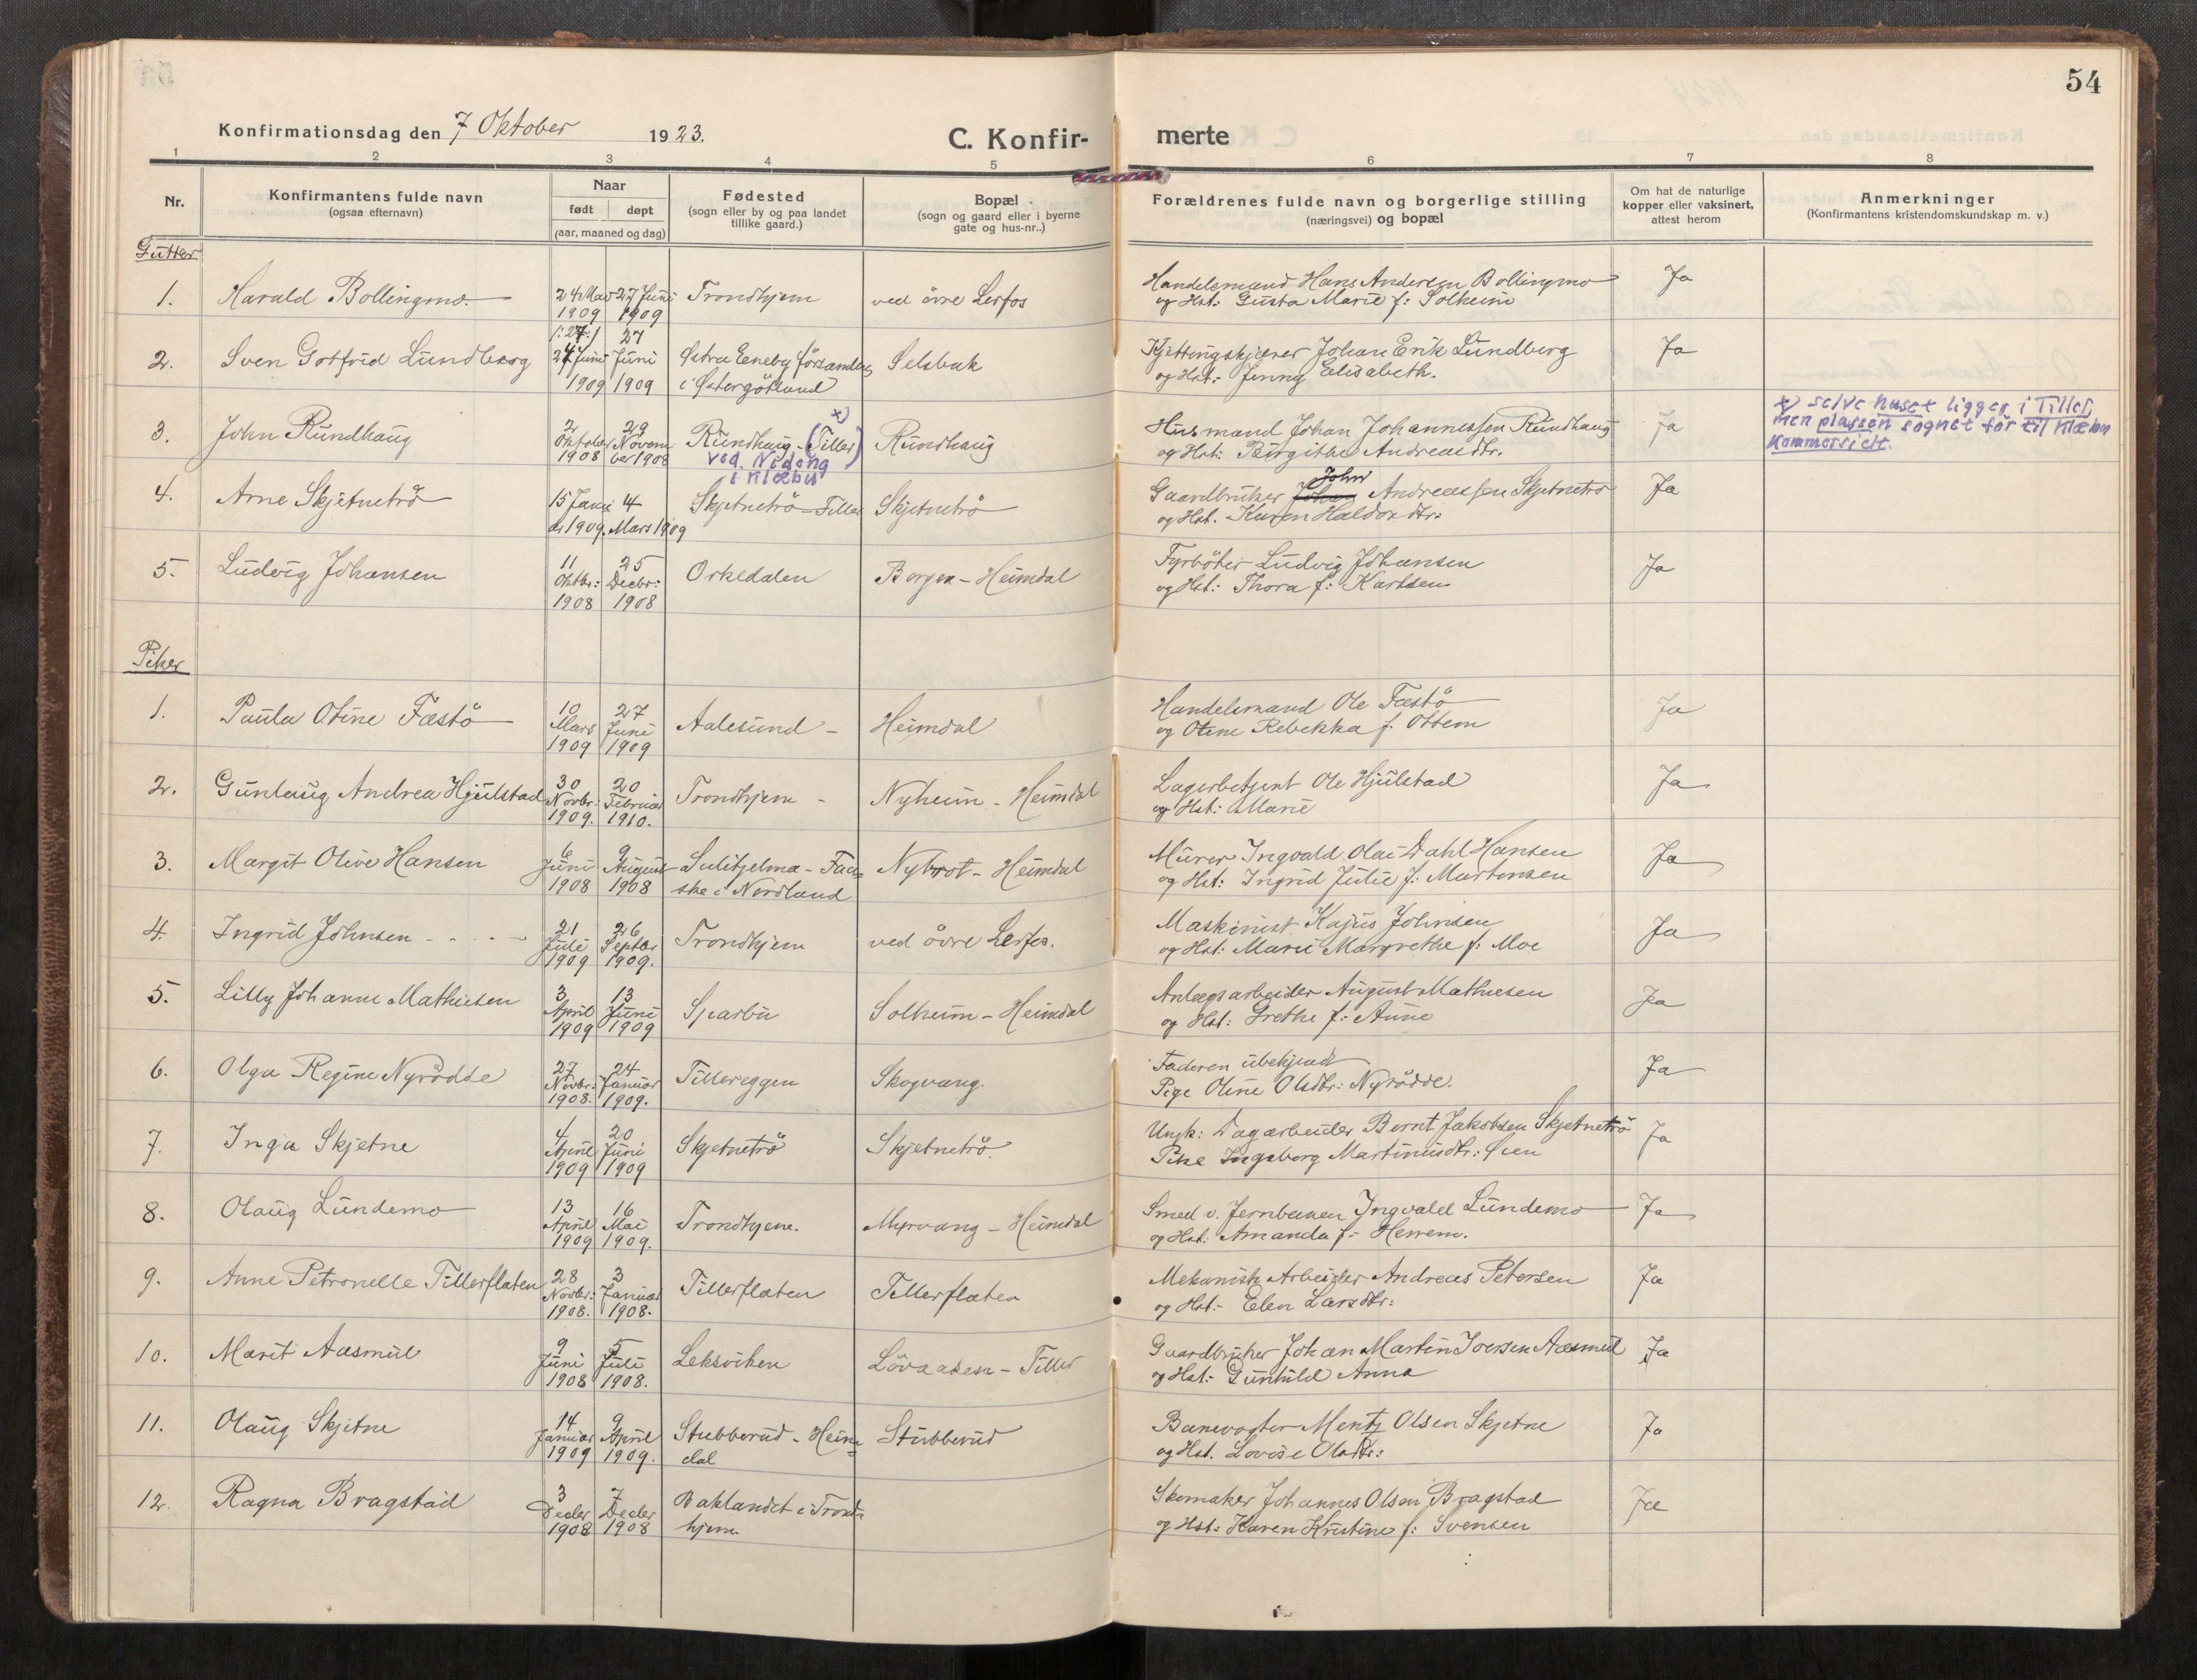 54
Konfirmationsdag den 7 Oktober 1923.
C. Konfir- merte
1 2 3 4 5 6 7 8
Nr.
Konfirmantens fulde navn
(ogsaa efternavn)
Naar
født døpt
(aar, maaned og dag)
Fødested
(sogn eller by og paa landet
tillike gaard.)
Bopæl
(sogn og gaard eller i byerne
gate og hus-nr..)
Forældrenes fulde navn og borgerlige stilling
(næringsvei) og bopæl
Om hat de naturlige
kopper eller vaksinert,
attest herom
Anmerkninger
(Konfirmantens kristendomskundskap m. v.)
Gutter
1. Harald Bollingmo. 24 Mai 1909 27 Juni 1909 Trondhjem ved övre Lerfos Handelsmand Hans Andersen Bollingmo Ja
og Hst: Gusta Marie f: Solheim
2. Sven Gotfrid Lundberg 24 Juni 1909 /:24:/ 27 Juni 1909 Østra Eneby församling Selsbak Kjettingskjærer Johan Erik Lundberg Ja
i Østergötland og Hst:- Jenny Elisabeth.
3. John Rundhaug 2 Oktober 1908 29 November 1908 Rundhaug - (Tiller) x) Rundhaug Husmand Johan Johannessen Rundhaug Ja
ved Nideng
i Klæbu og Hst: Birgithe Andreasdtr.
x) selve huset ligger i Tiller
men plassen sognet før til Klæbu
kommersielt.
4. Arne Skjetnetrö 15 Januar 1909. 4 Mars 1909 Skjetnetrö - Tiller Skjetnetrö Gaardbruker Johan John Andreassen Skjetnetrö Ja
og Hst. Karen Haldorsdtr:
5. Ludvig Johansen 11 Oktbr: 1908 25 Decbr: 1908 Orkedalen Borgen - Heimdal Fyrböter Ludvig Johansen Ja
og Hst: Thora f: Karlsen
Piker
1. Paula Otine Fæstö 10 Mars 1909 27 Juni 1909 Aalesund - Heimdal Handelsmand Ole Fæstö Ja
og Otine Rebekka f. Ottem
2. Gunlaug Andrea Hjulstad 30 Novbr: 1909. 20 Februar 1910. Trondhjem - Nyheim - Heimdal Lagerbetjent Ole Hjulstad Ja
og Hst: Marie
3. Margit Olive Hansen 6 Juni 1908 9 August 1908 Sulitjelma - Fau- Nybrot - Heimdal Murer Ingvald Olai Dahl Hansen Ja
ske i Nordland og Hst: Ingrid Julie f: Martinsen
4. Ingrid Johnsen - - - - 21 Juli 1909 26 Septbr 1909. Trondhjem ved övre Lerfos. Maskinist Kajus Johnsen Ja
og Hst: Marie Margrethe f: Moe
5. Lilly Johanne Mathiesen 3 April 1909 13 Juni 1909 Sparbu Solheim - Heimdal Anlægsarbeider August Mathiesen Ja
og Hst: Grethe f:- Aune
6. Olga Regine Nyrödde 27 Novbr: 1908. 24 Januar 1909. Tillereggen Skogvang. Faderen ubekjendt Ja
Pige Oline Olsdtr: Nyrödde.
7. Inga Skjetne 4 April 1909 20 Juni 1909 Skjetnetrö Skjetnetrö. Ungk: Dagarbeider Bernt Jakobsen Skjetnetrö Ja
Pike Ingeborg Martinusdtr: Øien
8. Olaug Lundemo 13 April 1909 16 Mai 1909. Trondhjem. Myrvang - Heimdal Smed v. Jernbanen Ingvald Lundemo Ja
og Hst: Amanda f:- Herrem.
9. Anne Petronelle Tillerflaten 28 Novbr: 1908. 3 Januar 1908. Tillerflaten Tillerflaten Mekanisk Arbeider Andreas Petersen Ja
og Hst:- Elen Larsdtr:
10. Marit Aasmul 9 Juni 1908 5 Juli 1908. Leksviken Lövaasen - Tiller Gaardbruker Johan Martin Iversen Aasmul Ja
og Hst:- Gunhild Anna
11. Olaug Skjetne 14 Januar 1909 9 April 1909. Stubberud - Heim- Stubberud Banevogter Mentz Olsen Skjetne Ja
dal og Hst. Lovise Olsdtr:
12. Ragna Bragstad 3 Decbr 1908 7 Decbr 1908 Baklandet i Trond- Skomaker Johannes Olsen Bragstad Ja
hjem og Hst: Karen Kristine f: Svensen